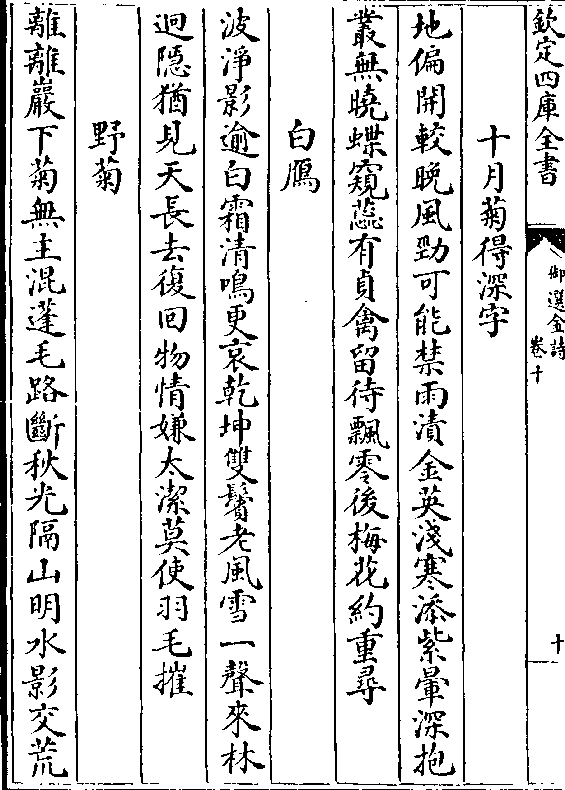 欽定四庫全書
御選金詩
卷十
十
十月菊得深字
地偏開較晚風勁可能禁雨漬金英淺寒添紫暈深抱
叢無曉蝶窺蕊有貞禽留待飄零後梅花約重尋
白鴈
波淨影逾白霜清鳴更哀乾坤雙鬢老風雪一聲來林
迥隠猶見天長去復回物情嫌太潔莫使羽毛摧
野菊
離離巖下菊無主混蓬毛路斷秋光隔山明水影交荒